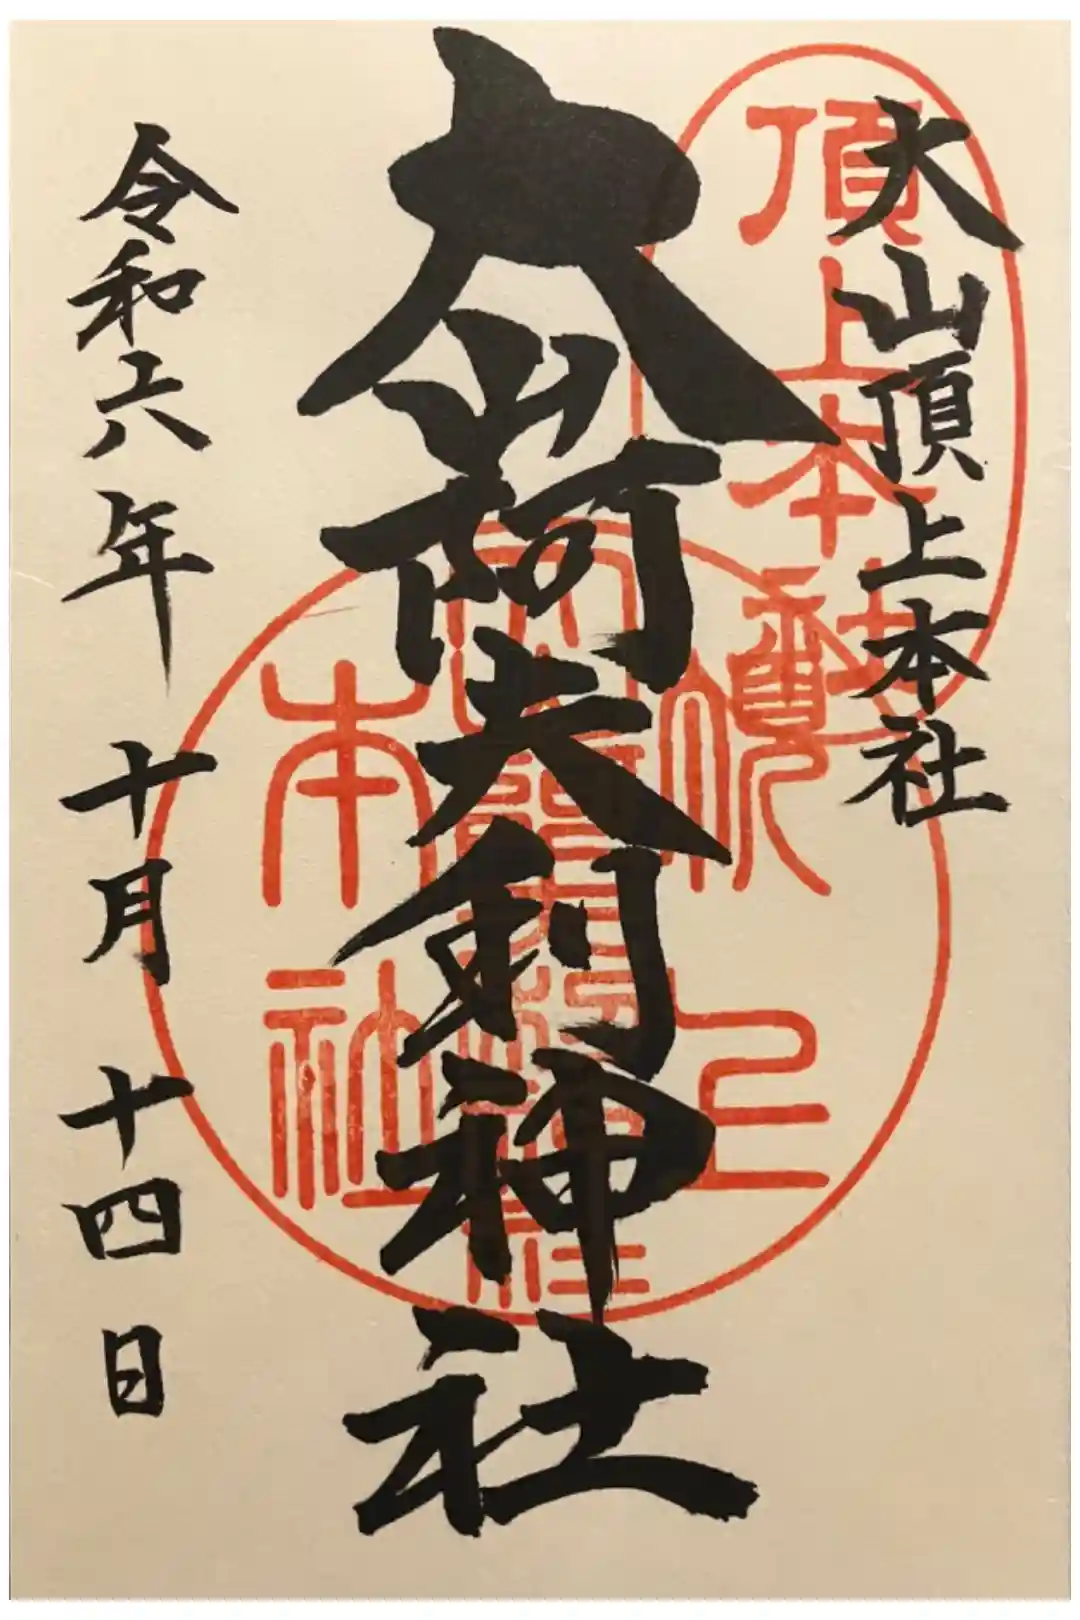 大山頂上本社
大山阿夫利神社
令和六年 十月 十四日
頂上本社
本社